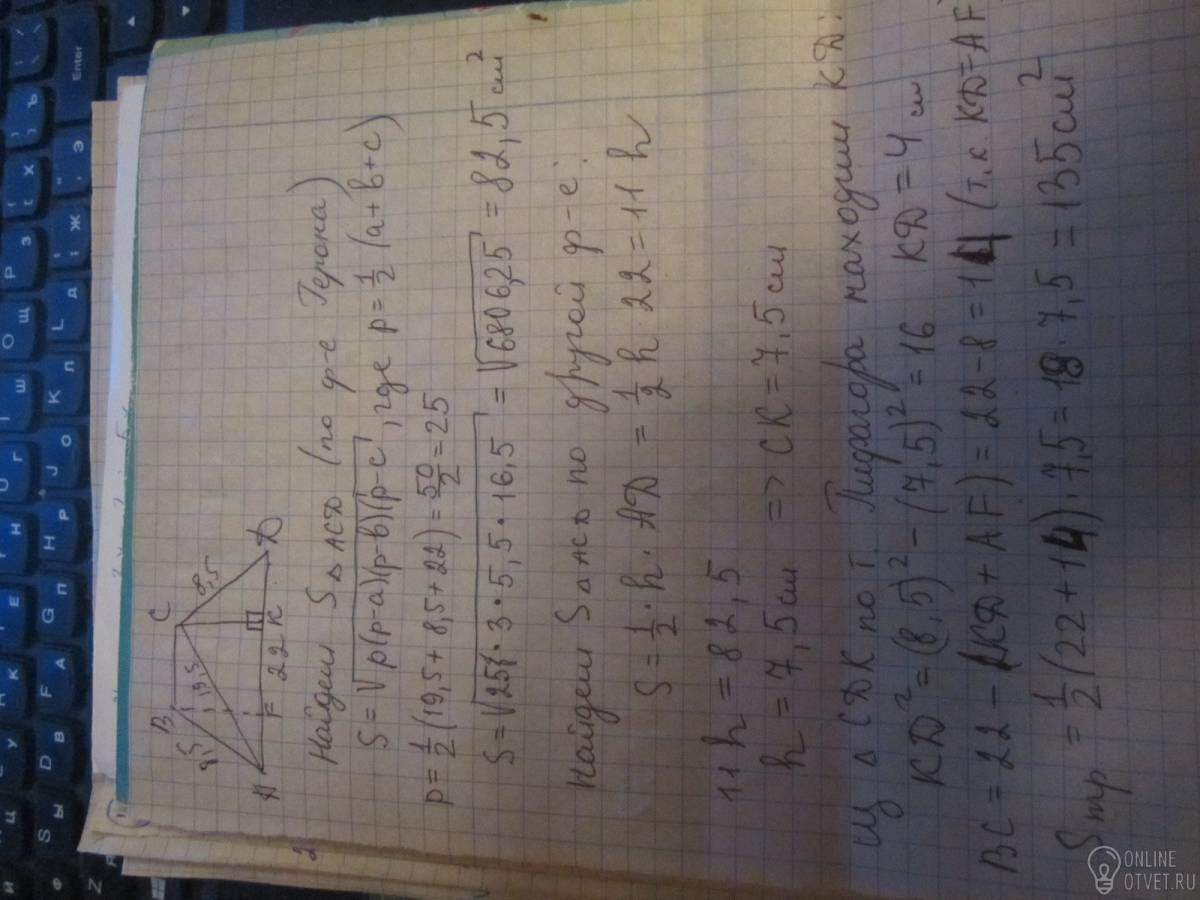 B C
8,5 19,5 8,5
A F 22 K D
Найдем S△ACD (по ф-е Герона)
S=√p(p-a)(p-b)(p-c), где p=1/2(a+b+c)
p=1/2(19,5+8,5+22)=50/2=25
S=√25·3·5,5·16,5=√6806,25=82,5 см²
Найдем S△ACD по другой ф-е:
S=1/2·h·AD=1/2h·22=11h
11h=82,5
h=7,5см => CK=7,5см
Из △CDK по т. Пифагора находим KD:
KD²=(8,5)²-(7,5)²=16 KD=4 см
BC=22-(KD+AF)=22-8=14 (т.к KD=AF)
Sтр=1/2(22+14)·7,5=18·7,5=135см²
2
Enter
ONLINE
OTVET.RU